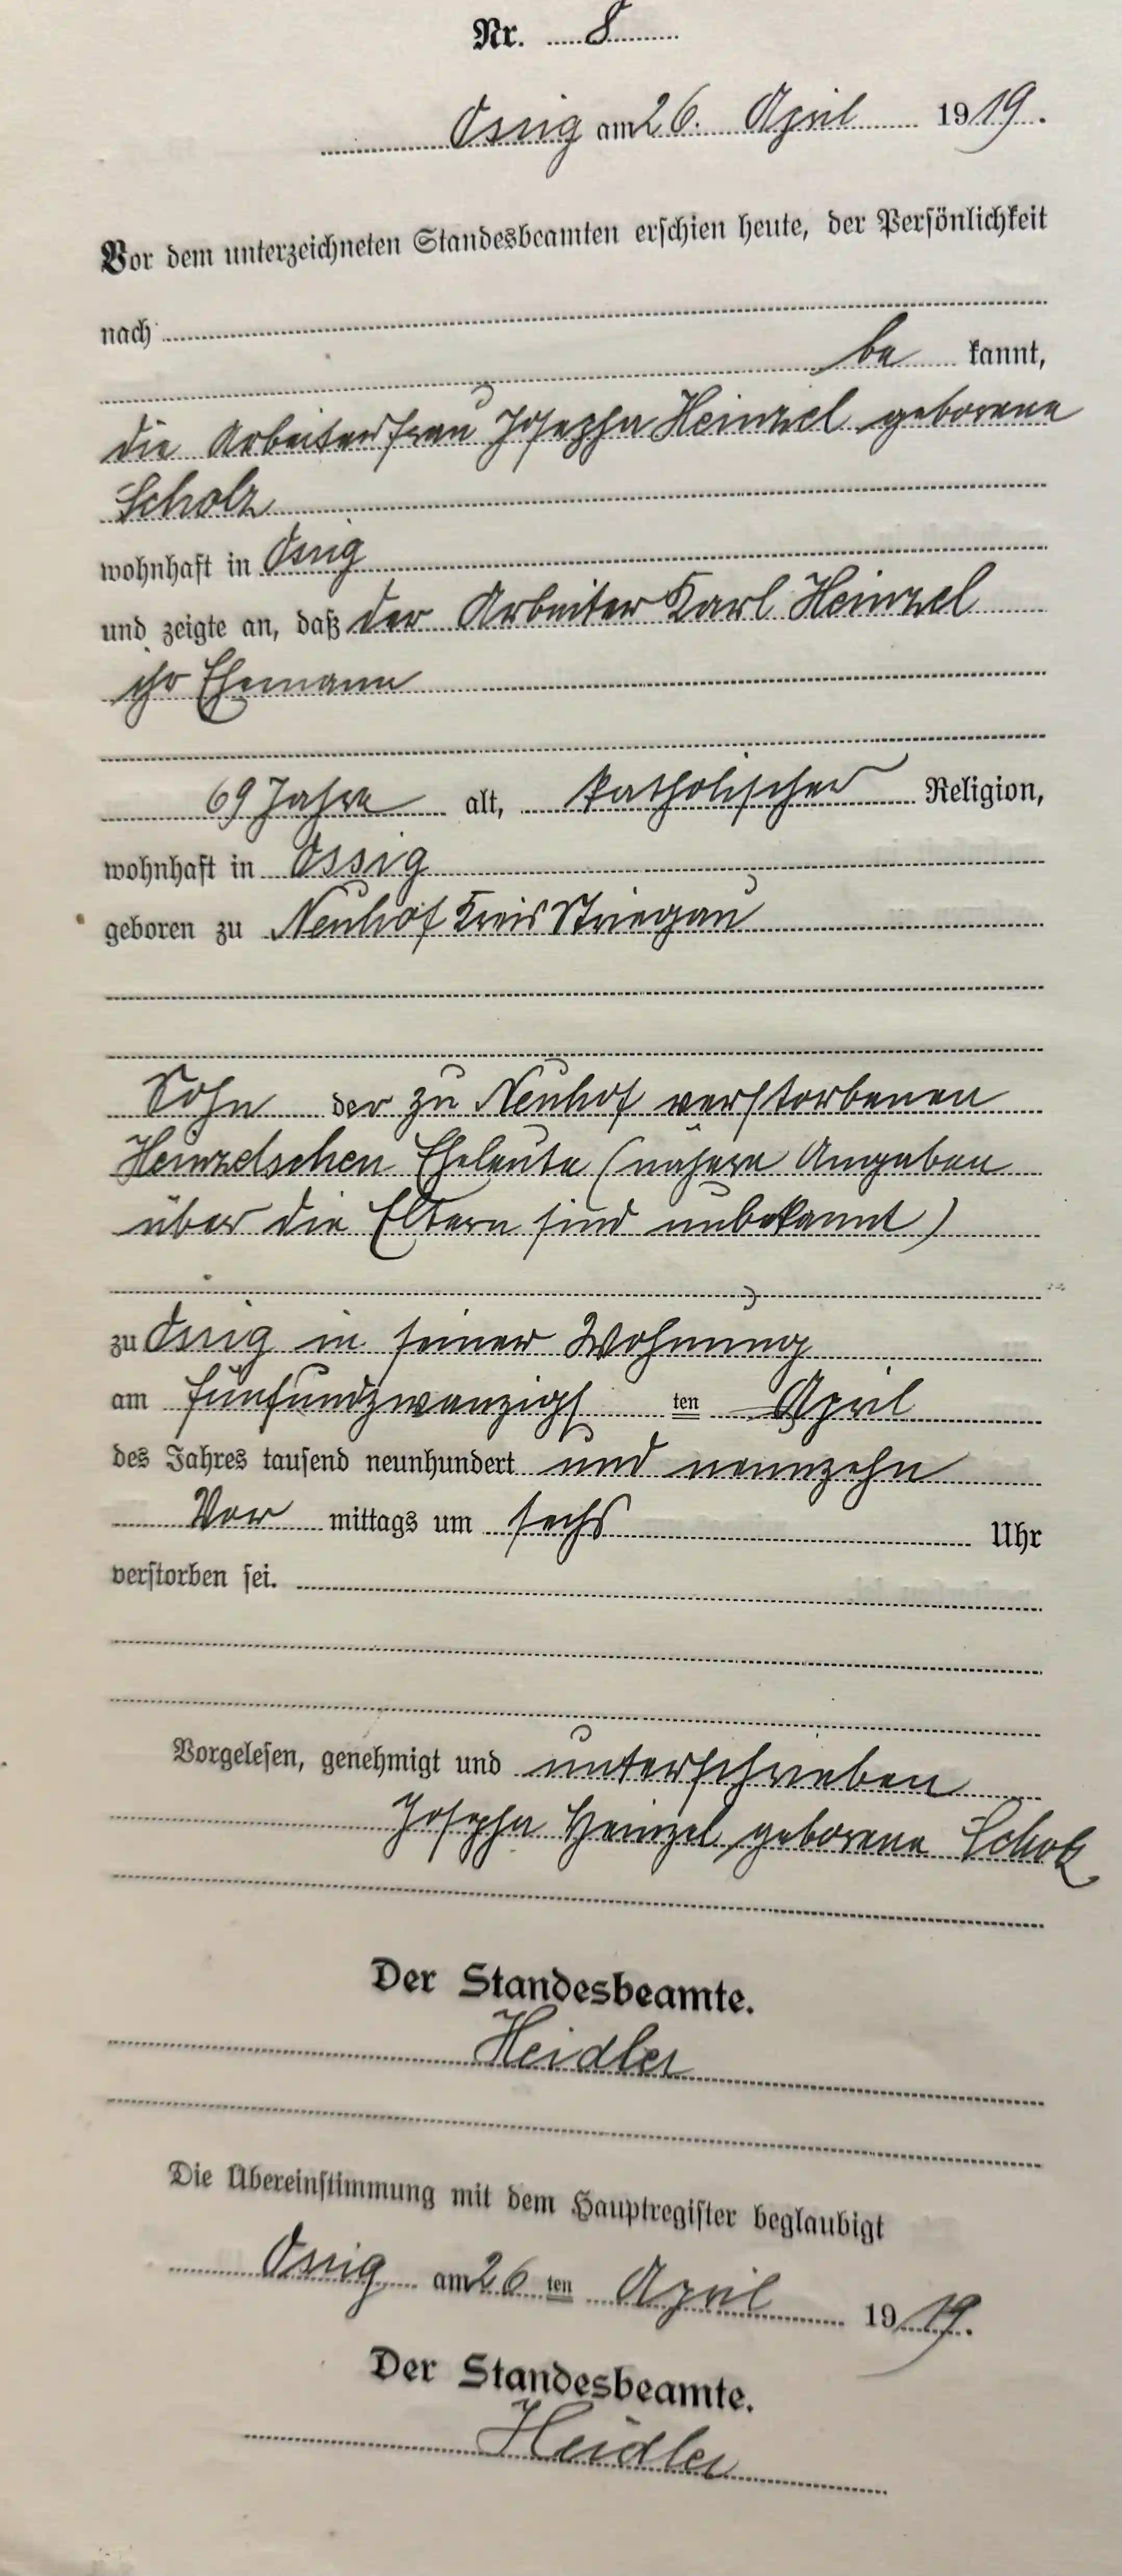 Nr. 8
Ossig am 26. April 1919.
Vor dem unterzeichneten Standesbeamten erschien heute, der Persönlichkeit
nach
be kannt,
die Arbeiterfrau Josepha Heinzel geborene
Scholz
wohnhaft in Ossig
und zeigte an, daß der Arbeiter Karl Heinzel
ihr Ehemann
69 Jahre alt, katholischer Religion,
wohnhaft in Ossig
geboren zu Neuhof Kreis Striegau
Sohn der zu Neuhof verstorbenen
Heinzelschen Eheleute (nähere Angaben
über die Eltern sind unbekannt)
zu Ossig in seiner Wohnung
am fünfundzwanzigs ten April
des Jahres tausend neunhundert und neunzehn
Vor mittags um sechs Uhr
verstorben sei.
Vorgelesen, genehmigt und unterschrieben
Josepha Heinzel geborene Scholz
Der Standesbeamte.
Heidler
Die Übereinstimmung mit dem Hauptregister beglaubigt
Ossig am 26 ten April 1919.
Der Standesbeamte.
Heidler